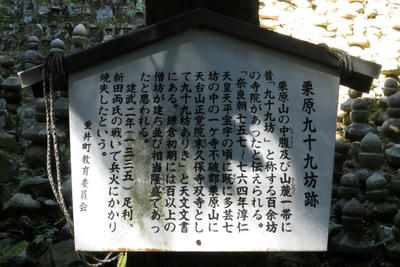 栗原九十九坊跡
栗原山の中腹及び山麓一帯に
昔「九十九坊」と称する百余坊
の寺院があったと伝えられる。
「奈良朝七五七～七六四年淳仁
天皇天平宝字の頃に既に多芸七
坊の中の一ヶ寺不破郡栗原山に
天台山正覚院末久保寺双寺とし
て九十九坊ありき」と天文文書
にある。鎌倉初期には百以上の
僧坊が建ち並び相当隆盛であっ
たと思われる。
建武二年（一三三五）足利、
新田両氏の戦いで兵火にかかり
焼失したという。
垂井町教育委員会